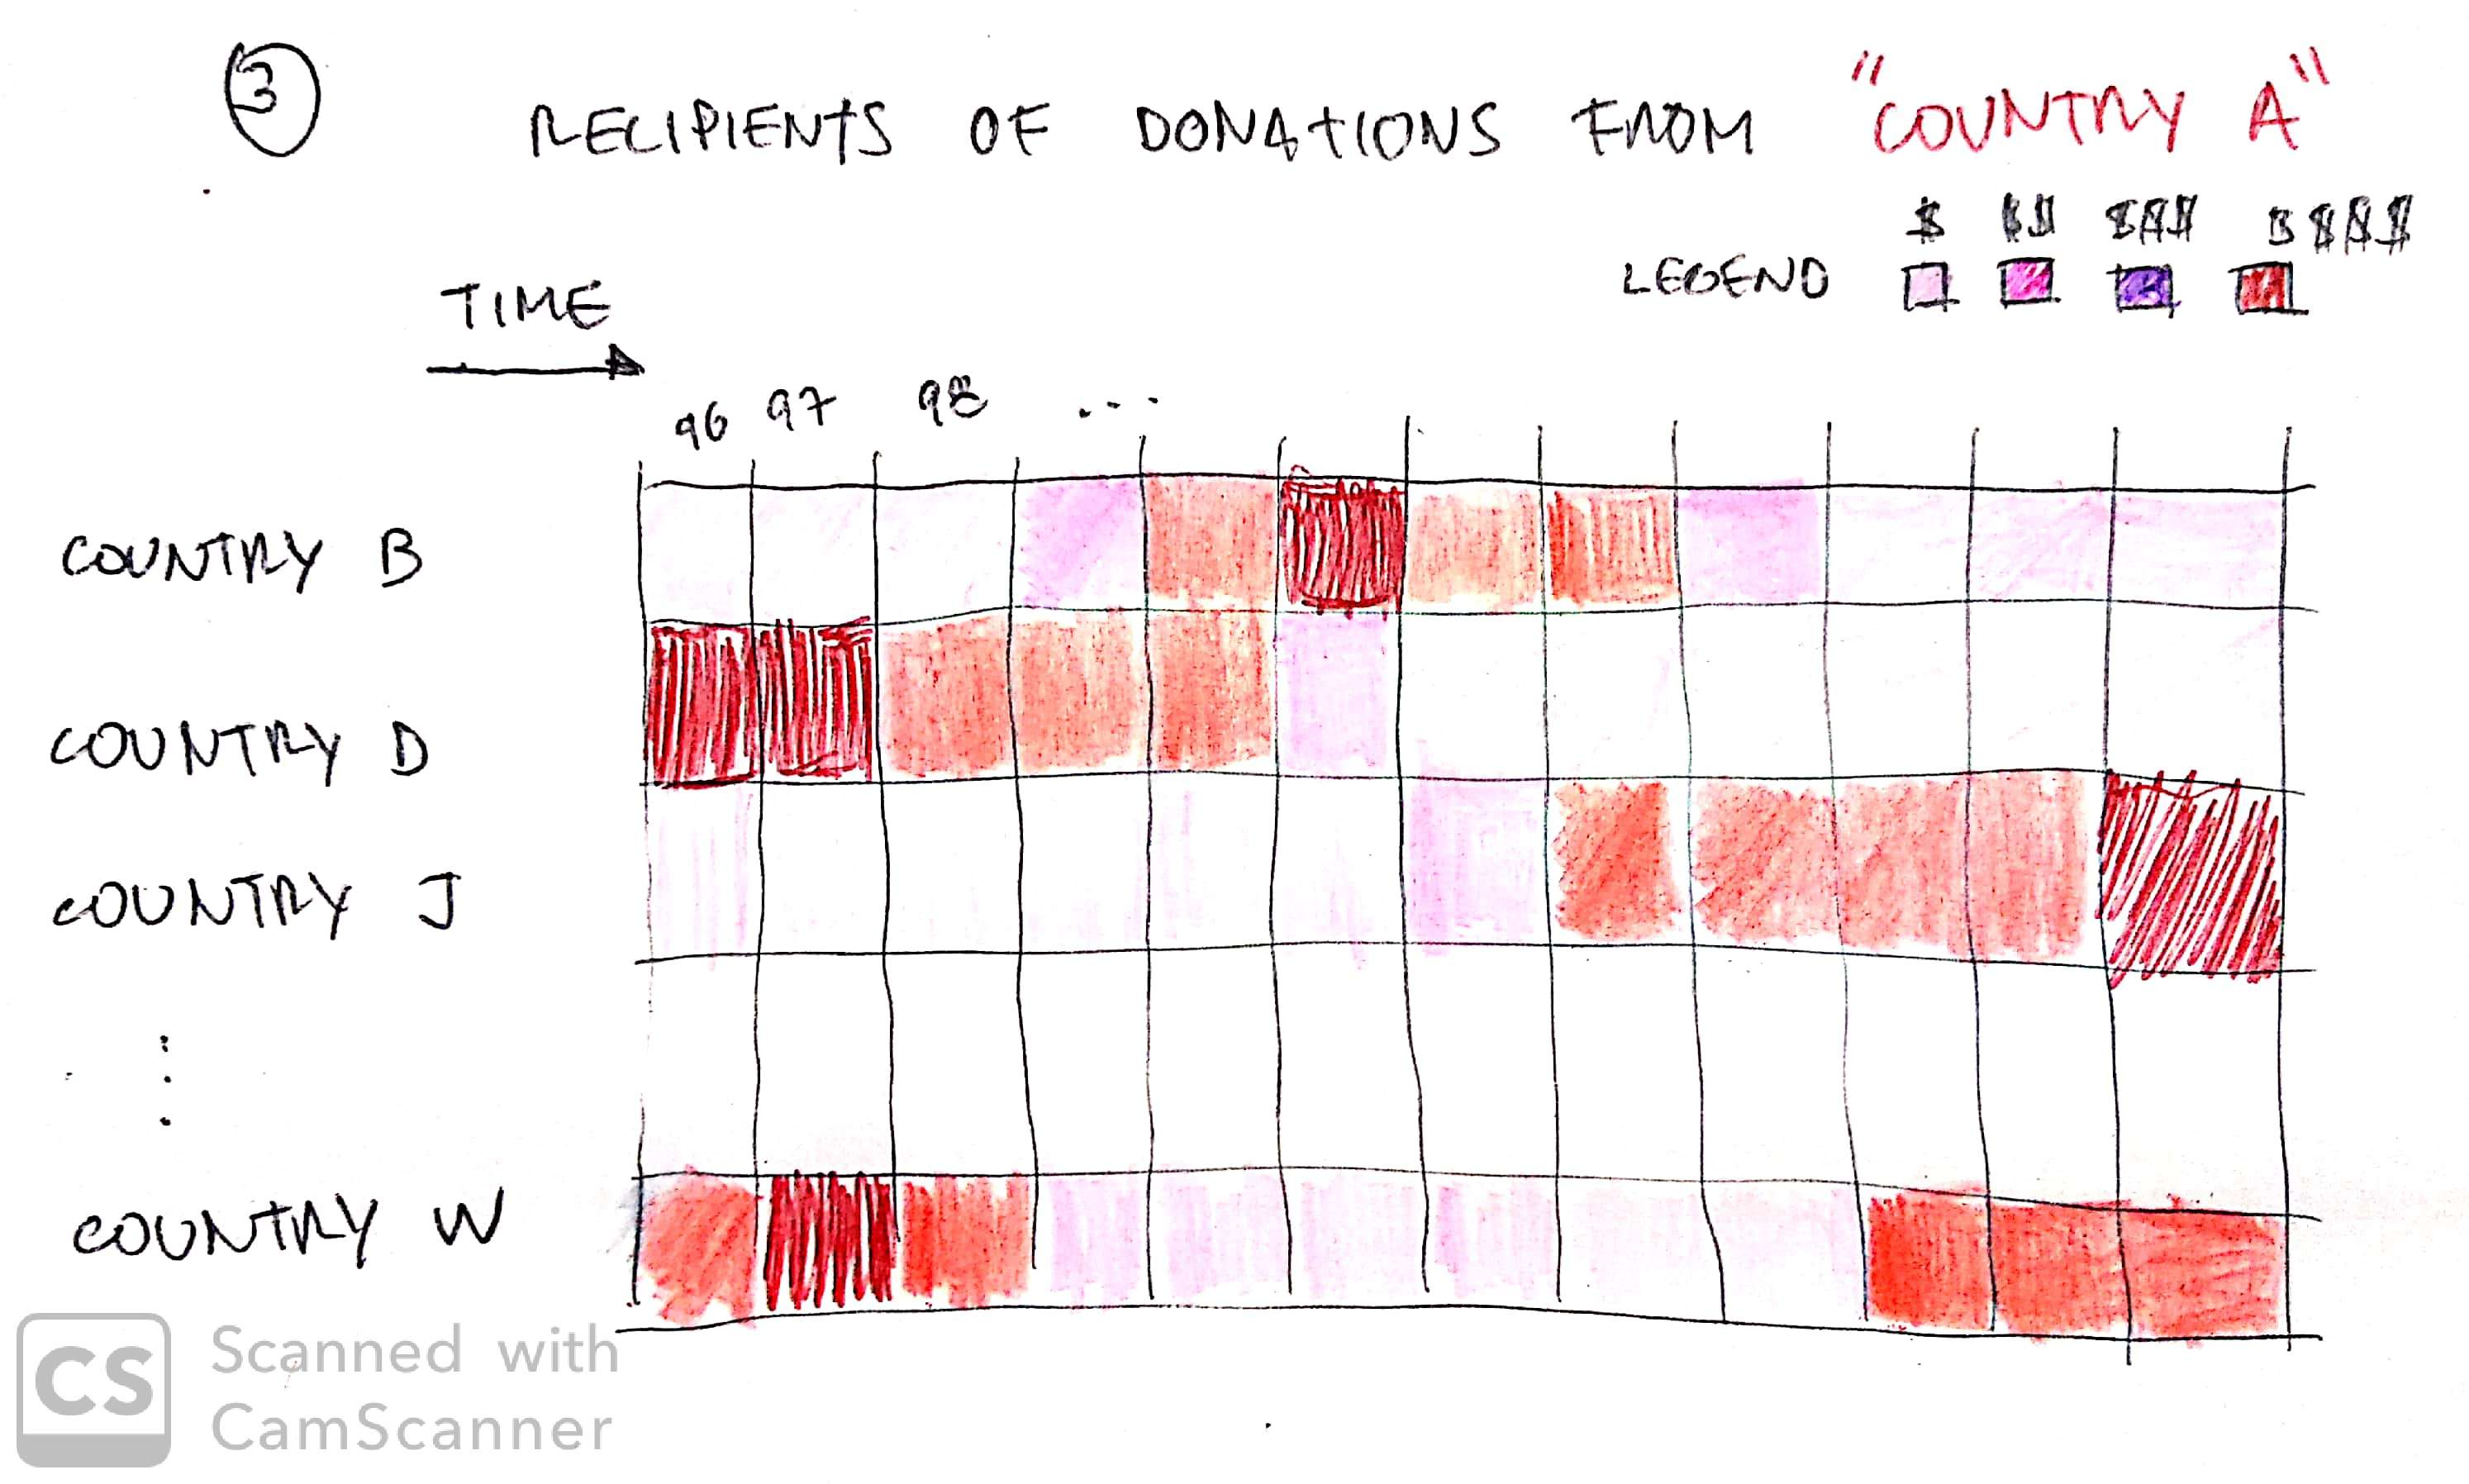 3
RECIPIENTS OF DONATIONS FROM "COUNTRY A"
$ $$ $$$ $$$$
LEGEND
TIME
96 97 98 ...
COUNTRY B
COUNTRY D
COUNTRY J
COUNTRY W
CS Scanned with
CamScanner